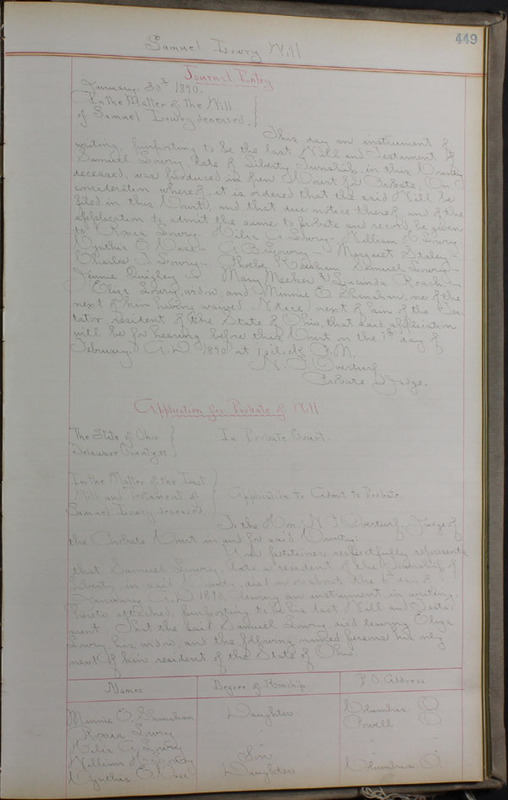 449
Samuel Lowry Will
Journal Entry
January 30th 1890.
In the Matter of the Will
of Samuel Lowry deceased.
This day an instrument of
writing, purporting to be the last Will and Testament of
Samuel Lowry late of Liberty Township, in this County
deceased, was produced in open Court for Probate, On
consideration whereof, it is ordered that the said Will be
filed in this Court, and that due notice thereof, and of the
application to admit the same to probate and record be given
to Rosea Lowry, A. Lowry, William H. Lowry
Cynthia O. A. B. Lowry, Margaret
Charles J. Lowry, Phoebe Samuel Lowry
Jennie Quigley Mary Lucinda Roach
Eliza Lowry widow and Minnie E. Shanahan, one of the
next of kin having waived Notice, next of kin of the Tes-
tator resident of the State of Ohio, that said application
will be for hearing before this Court on the 7th day of
February, A.D. 1890 at 1 o'clock P.M.
N. F. Overturf
Probate Judge.
Application for Probate of Will
The State of Ohio
Delaware County ss
In Probate Court.
In the Matter of the Last
Will and Testament of
Samuel Lowry deceased.
Application to Admit to Probate
To the Hon. N. F. Overturf, Judge of
the Probate Court in and for said County:
Your petitioner respectfully represents
that Samuel Lowry, late a resident of the Township of
Liberty in said County, died on or about the day of
January A.D. 1890, leaving an instrument in writing,
hereto attached, purporting to be his last Will and Testa-
ment. That the said Samuel Lowry died leaving Eliza
Lowry his widow, and the following named persons his only
next of kin resident of the State of Ohio
Names Degree of Kinship P.O. Address
Minnie E. Shanahan Daughter Columbus O
Rosea Lowry Powell O
A. Lowry
William H. Lowry Son
Cynthia O. Daughter Columbus O.